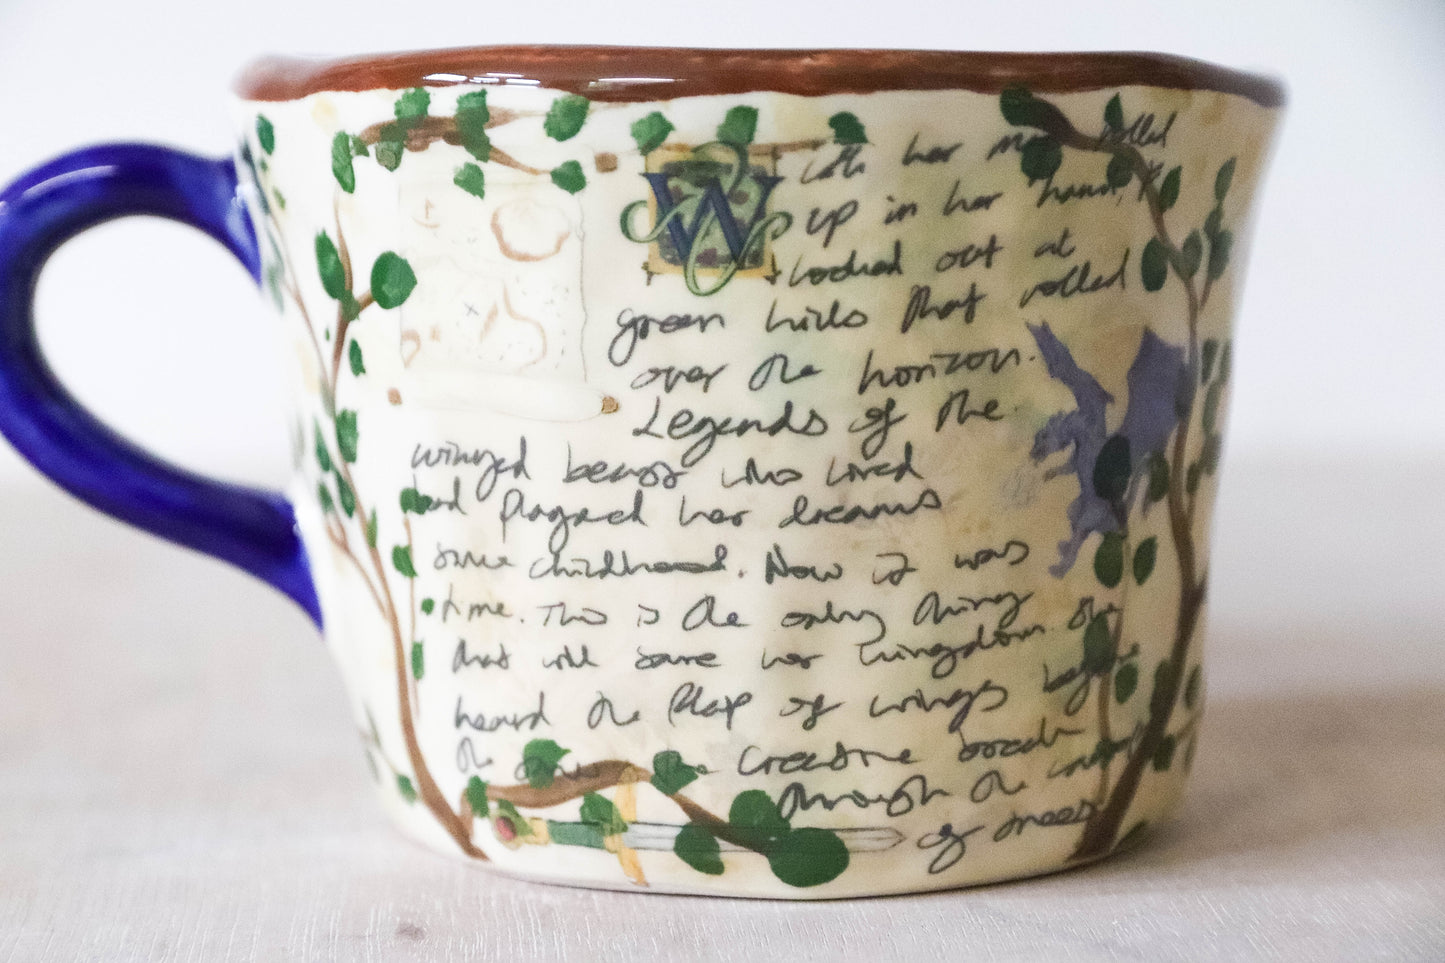 With her map rolled
up in her hand, K
looked out at
green hills that rolled
over the horizon.
Legends of the
winged beasts who lived
had plagued her dreams
since childhood. Now it was
time. This is the only thing
that will save her kingdom. She
heard the flap of wings before
the creature broke
through the
of trees